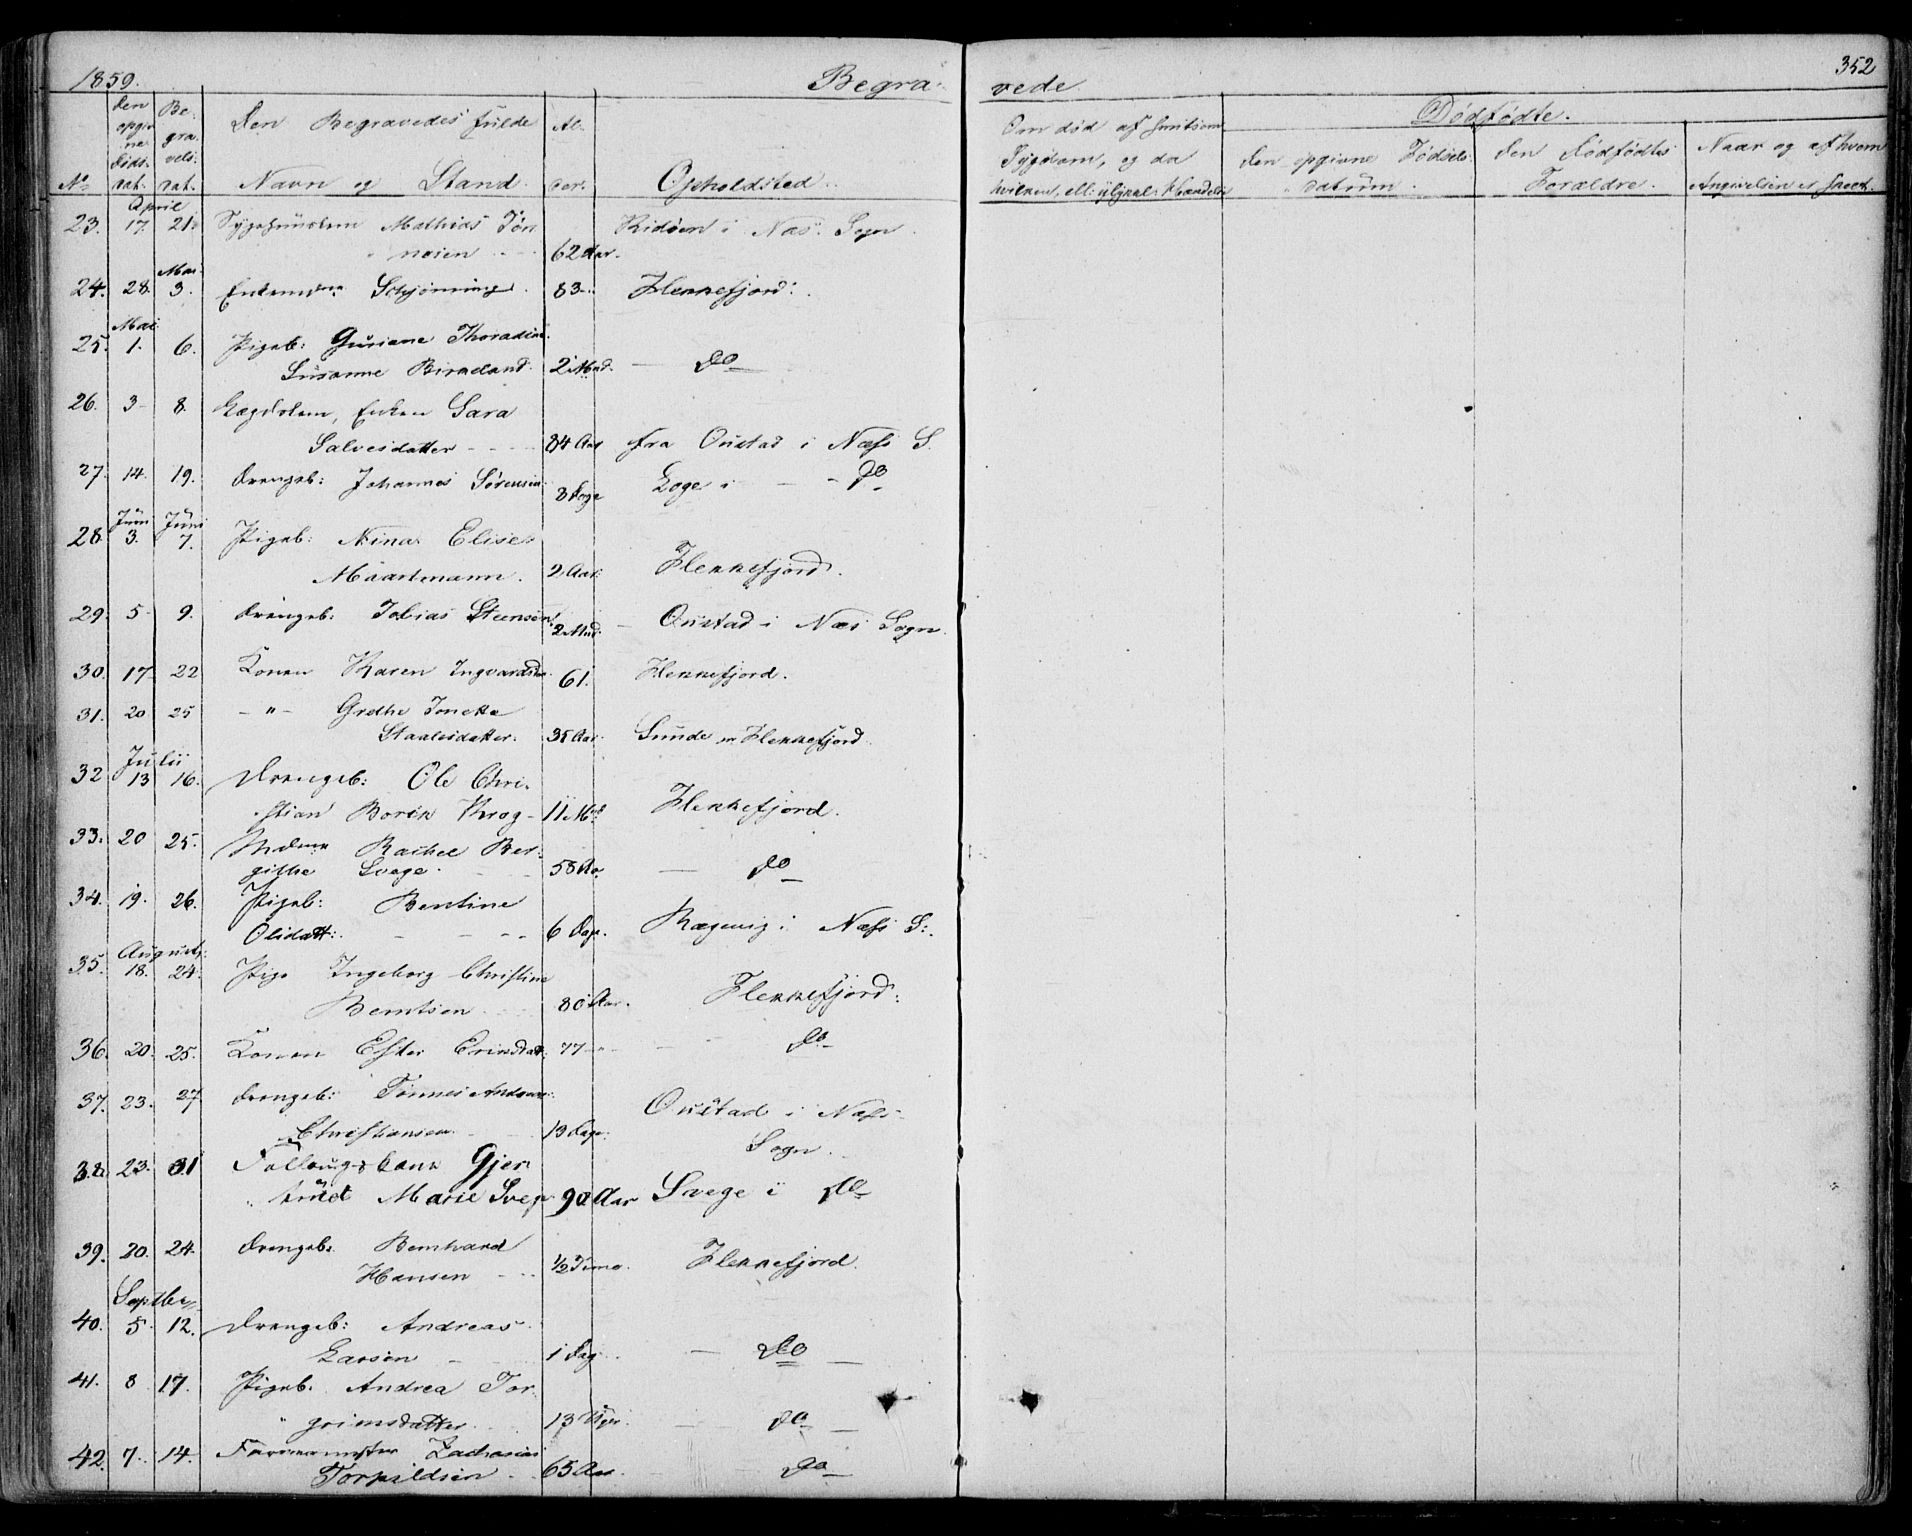 1859.
Begra- vede.
352
No
Den opgivne Døds- dat.
Be- gra- vels- dat.
Den Begravedes fulde
Navn og Stand.
Al- der.
Opholdsted.
Om død af smitsom
Sygdom, og da
hvilken, ell: ulykkel: Hændelse
Dødfødte.
Den opgivne Fødsels-
datum.
Den Dødfødtes
Forældre.
Naar og af hvem
Angivelsen er skeet.
April
23. 17. 21. Mathias Tøn
nesen 62 Aar. Ridøen i Næs Sogn
Mai
24. 28. 3. Enkemdme Schjønning 83 Flekkefjord.
Mai
25. 1. 6. Pigeb: Guriane Thoradine
Susanne Birkeland 2 Mnd. Do
26. 3 8. Lægdslem, Enken Sara
Salvesdatter 84 Aar fra Oustad i Næss S.
27. 14. 19. Drengeb: Johannes Sørensen
8 Dage Loge i Do
Juni Juni
28. 3. 7. Pigeb: Nina Elise
Maartmann. 2 Aar Flekkefjord.
29. 5 9. Drengeb: Tobias Steensen
2 Mnd. Oustad i Næs Sogn.
30. 17 22 Konen Karen Ingvardsen 61. Flekkefjord.
31. 20 25 - " - Grethe Tonette
Staalesdatter. 35 Aar. Sunde v. Flekkefjord
Julii
32 13 16. Drengeb: Ole Chri-
stian Borik Krog 11 Md. Flekkefjord.
33. 20 25. Mdme Rachel Ber-
githe Svege. 58 Aar Do
34. 19. 26. Pigeb: Bentine
Olsdatt: 6 Dage. Rægevig i Næss S:
August
35. 18. 24. Pige Ingeborg Christine
Berntsen 80 Aar. Flekkefjord.
36. 20. 25. Konen Ester Eriksdatt. 77 Do
37. 23. 27 Drengeb: Tønnes Andreas
Christiansen 13 Dage. Oustad i Næss
Sogn.
38. 23. 31 Føllougskone Gjer
trud Marie Svege 90 Aar Svege i Do
39. 20. 24. Drengeb. Bernhard
Hansen 1/2 Time. Flekkefjord.
Septber
40. 5 12. Drengeb: Andreas
Larsen 1 Dag Do
41. 8 17. Pigeb. Andrea Tor-
grimsdatter 13 Uger. Do
42. 7. 14. Zacharias
Torkildsen 65 Aar. Do